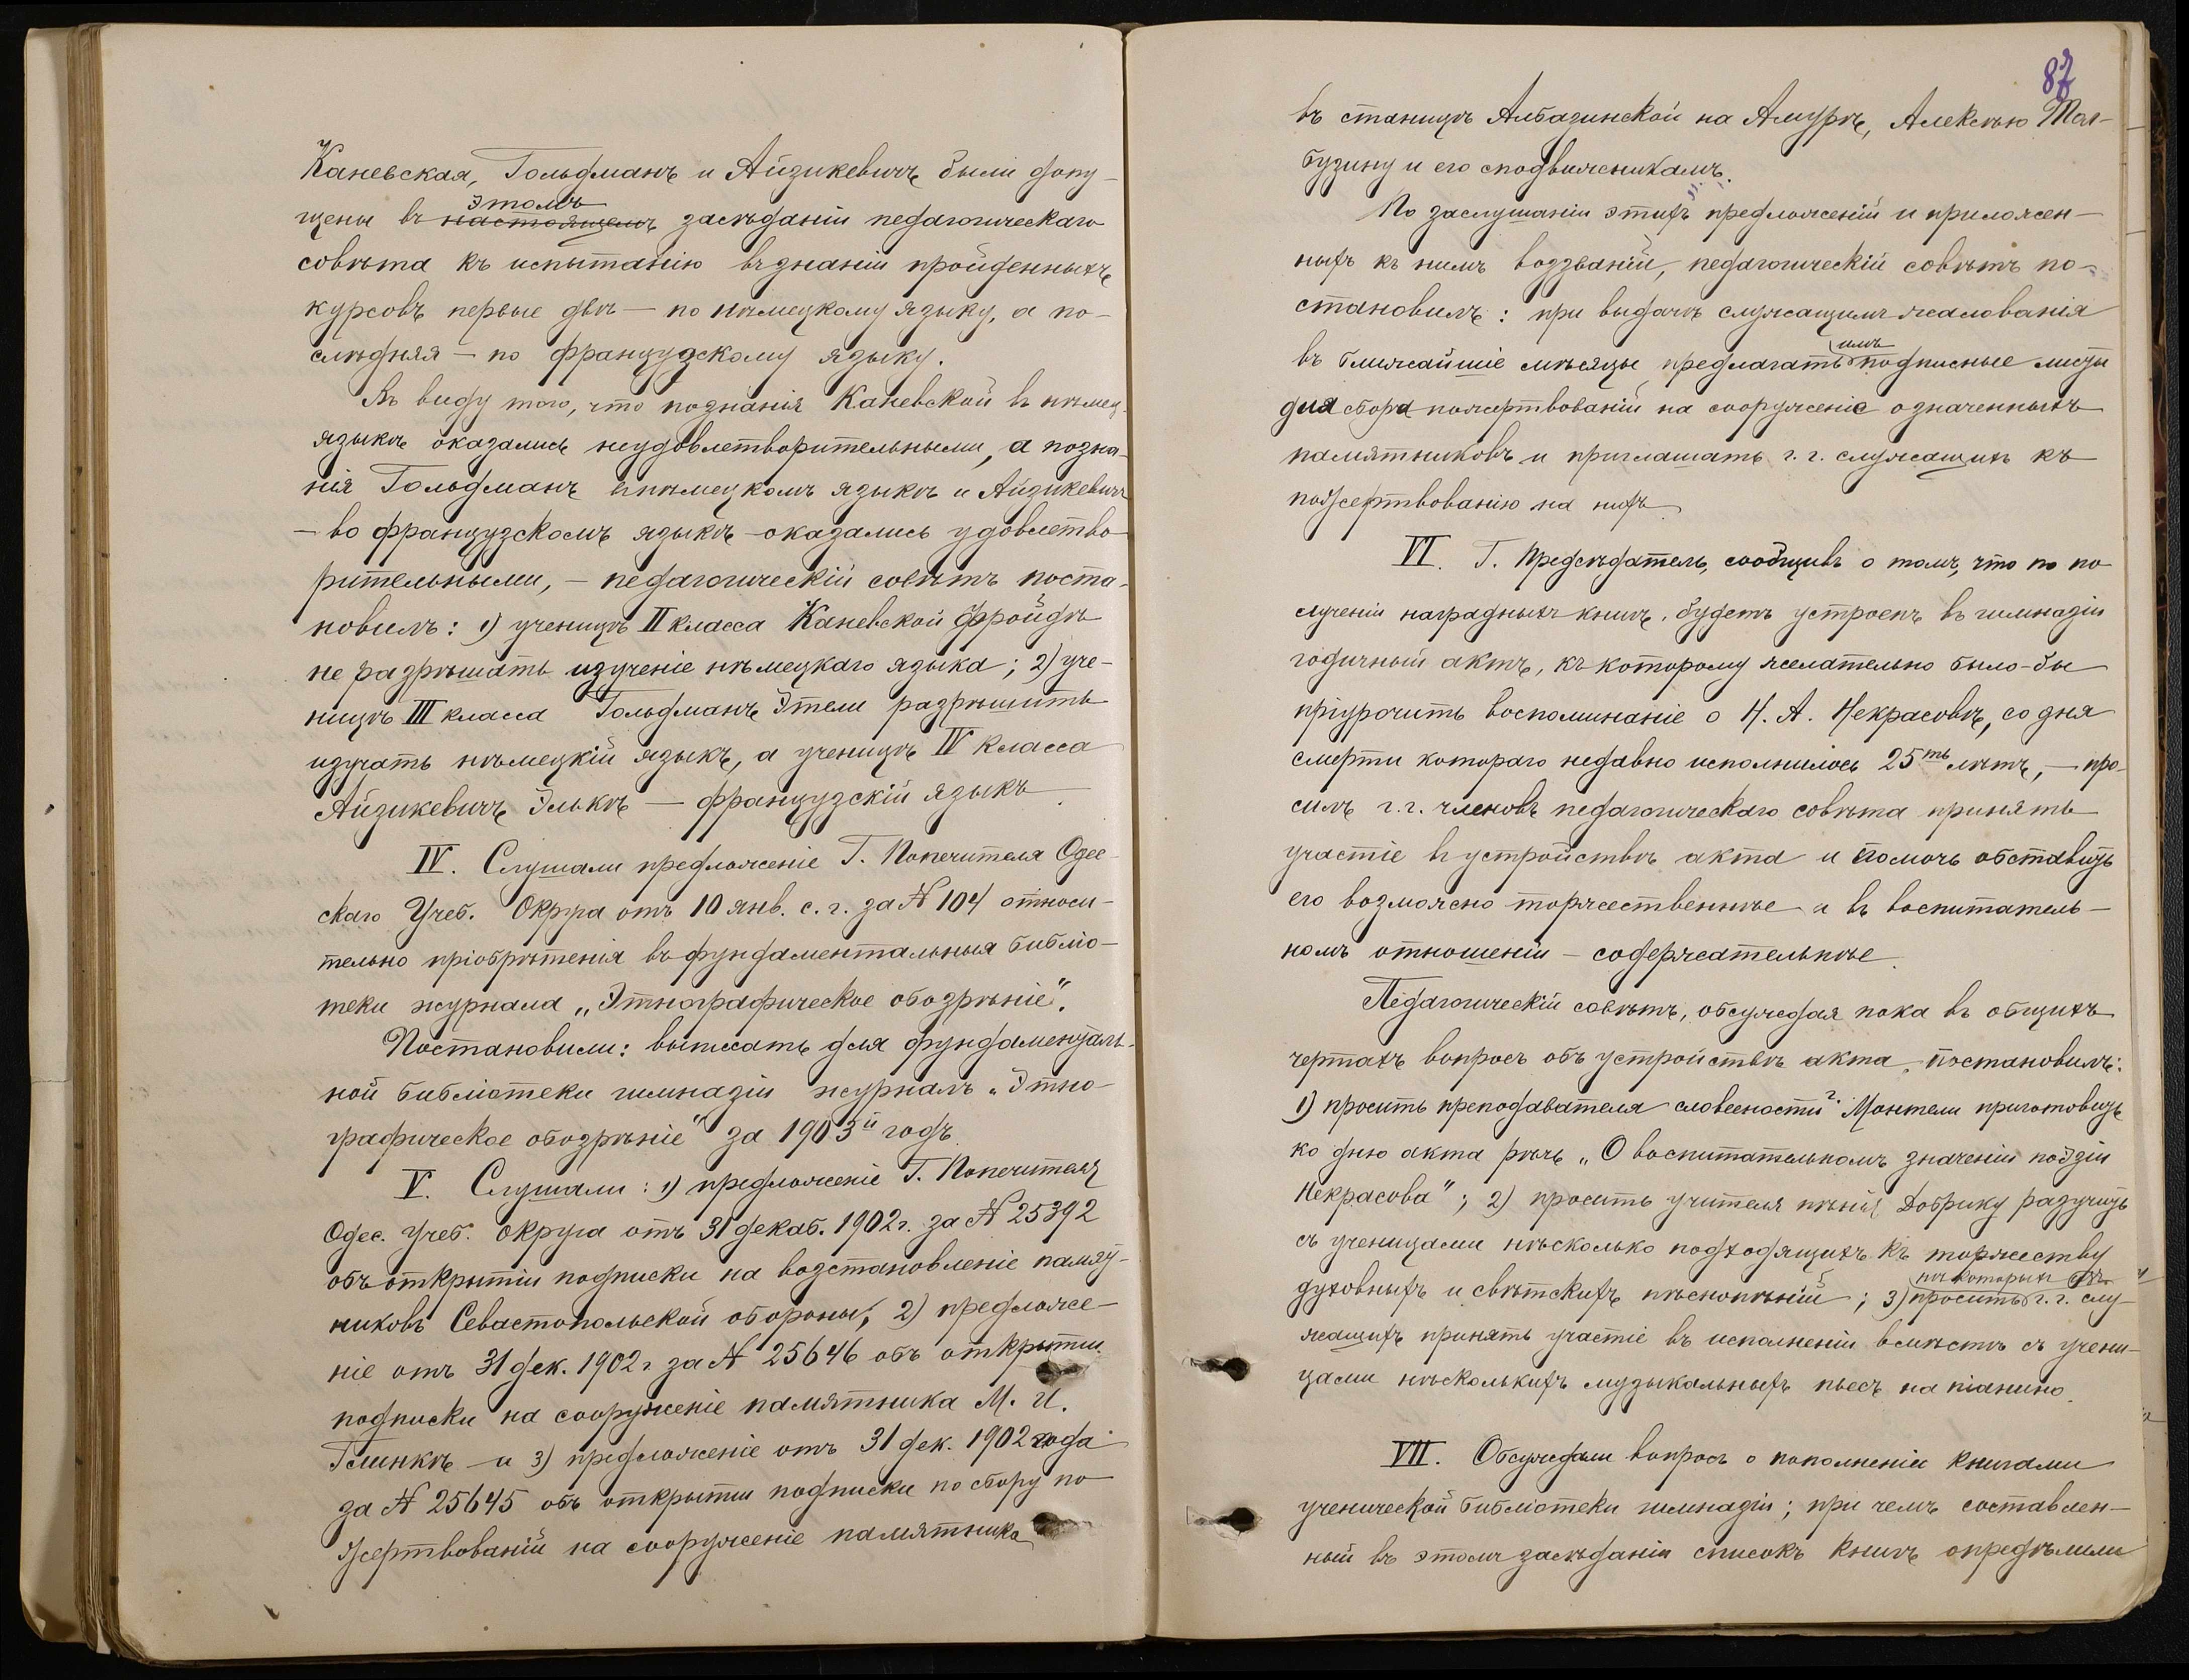 Каневская, Гольдманъ и Айзикевичъ были допу-
этомъ
щены въ настоящемъ засѣданіи педагогическаго
совѣта къ испытанію въ знаніи пройденныхъ
курсовъ первые двѣ — по нѣмецкому языку, а по-
слѣдняя — по французскому языку.
Въ виду того, что познанія Каневской въ нѣмец.
языкѣ оказались неудовлетворительными, а позна-
нія Гольдманъ въ нѣмецкомъ языкѣ и Айзикевичъ
— во французскомъ языкѣ — оказались удовлетво-
рительными, — педагогическій совѣтъ поста-
новилъ: 1) ученицѣ II класса Каневской Фройдѣ
не разрѣшать изученіе нѣмецкаго языка; 2) уче-
ницѣ III класса Гольдманъ Этели разрѣшить
изучать нѣмецкій языкъ, а ученицѣ IV класса
Айзикевичъ Элькѣ — французскій языкъ.
IV. Слушали предложеніе Г. Попечителя Одес-
скаго Учеб. Округа отъ 10 янв. с. г. за № 104 относи-
тельно пріобрѣтенія въ фундаментальныя библіо-
теки журнала „Этнографическое обозрѣніе“.
Постановили: выписать для фундаменталь-
ной библіотеки гимназіи журналъ „Этно-
графическое обозрѣніе“ за 1903й годъ.
V. Слушали: 1) предложеніе Г. Попечителя
Одес. Учеб. Округа отъ 31 декаб. 1902 г. за № 25392
объ открытіи подписки на возстановленіе памят-
никовъ Севастопольской обороны; 2) предложе-
ніе отъ 31 дек. 1902 г. за № 25646 объ открытіи
подписки на сооруженіе памятника М. И.
Глинкѣ — и 3) предложеніе отъ 31 дек. 1902 года
за № 25645 объ открытіи подписки по сбору по-
жертвованій на сооруженіе памятника
87
въ станицѣ Албазинской на Амурѣ, Алексѣю Тол-
бузину и его сподвижникамъ.
По заслушаніи этихъ предложеній и приложен-
ныхъ къ нимъ воззваній, педагогическій совѣтъ по-
становилъ: при выдачѣ служащимъ жалованія
имъ
въ ближайшіе мѣсяцы предлагать подписные листы
для сбора пожертвованій на сооруженіе означенныхъ
памятниковъ и приглашать г. г. служащихъ къ
пожертвованію на нихъ.
VI. Г. Предсѣдатель, сообщивъ о томъ, что по по-
лученіи наградныхъ книгъ, будетъ устроенъ въ гимназіи
годичный актъ, къ которому желательно было-бы
пріурочить воспоминаніе о Н. А. Некрасовѣ, со дня
смерти котораго недавно исполнилось 25ть лѣтъ, — про-
силъ г. г. членовъ педагогическаго совѣта принять
участіе въ устройствѣ акта и помочь обставить
его возможно торжественнѣе а въ воспитатель-
номъ отношеніи — содержательнѣе.
Педагогическій совѣтъ, обсуждая пока въ общихъ
чертахъ вопросъ объ устройствѣ акта, постановилъ:
1) просить преподавателя словесности г. Монтели приготовить
ко дню акта рѣчь „О воспитательномъ значеніи поэзіи
Некрасова“; 2) просить учителя пѣнія Добрику разучить
съ ученицами нѣсколько подходящихъ къ торжеству
нѣкоторыхъ
духовныхъ и свѣтскихъ пѣснопѣній; 3) просить г. г. слу-
жащихъ принять участіе въ исполненіи вмѣстѣ съ учени-
цами нѣсколькихъ музыкальныхъ пьесъ на піанино.
VII. Обсуждали вопросъ о пополненіи книгами
ученической библіотеки гимназіи; при чемъ составлен-
ный въ этомъ засѣданіи списокъ книгъ опредѣлили